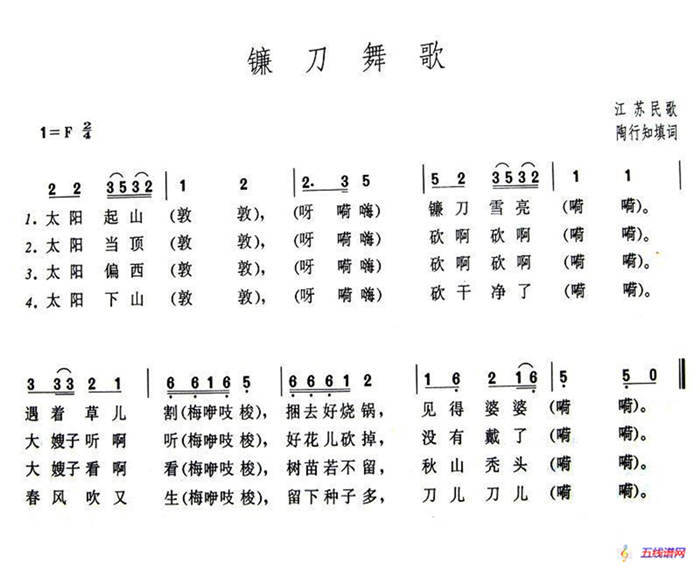 镰刀舞歌
1=F 2/4
江苏民歌
陶行知填词
2 2 3532 | 1 2 | 2. 3 5 | 5 2 3532 | 1 1 |
1. 太阳 起山 (敦 敦), (呀 嗬嗨) 镰刀 雪亮 (嗬 嗬)。
2. 太阳 当顶 (敦 敦), (呀 嗬嗨) 砍啊 砍啊 (嗬 嗬)。
3. 太阳 偏西 (敦 敦), (呀 嗬嗨) 砍啊 砍啊 (嗬 嗬)。
4. 太阳 下山 (敦 敦), (呀 嗬嗨) 砍干 净了 (嗬 嗬)。
3 33 2 1 | 6 616 5 | 6 661 2 | 1 6 2 16 | 5 5 0 ‖
遇着 草儿 割(梅咿吱 梭), 捆去好烧锅, 见得 婆婆 (嗬 嗬)。
大 嫂子听啊 听(梅咿吱 梭), 好花儿砍掉, 没有 戴了 (嗬 嗬)。
大 嫂子看啊 看(梅咿吱 梭), 树苗若不留, 秋山 秃头 (嗬 嗬)。
春风 吹又 生(梅咿吱 梭), 留下种子多, 刀儿 刀儿 (嗬 嗬)。
五线谱网